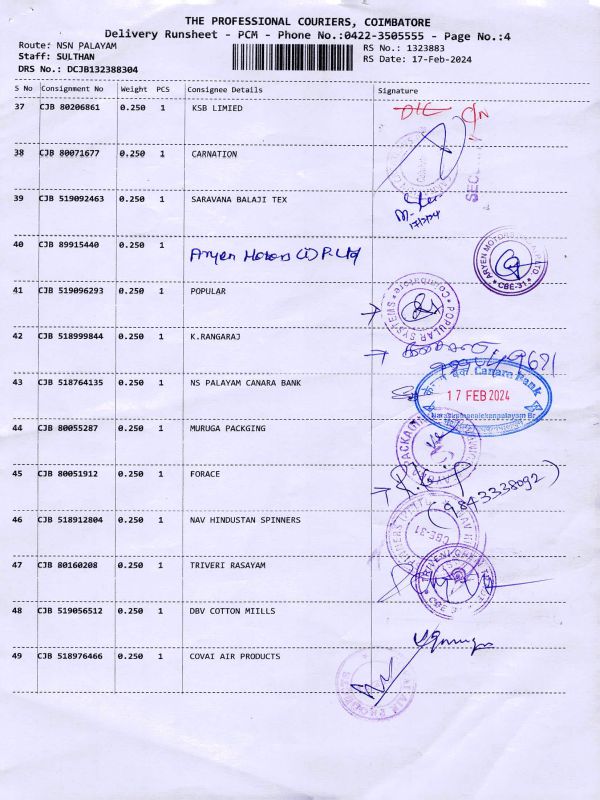 THE PROFESSIONAL COURIERS, COIMBATORE
Delivery Runsheet - PCM - Phone No.:0422-3505555 - Page No.:4
Route: NSN PALAYAM
RS No.: 1323883
Staff: SULTHAN
RS Date: 17-Feb-2024
DRS No.: DCJB132388304
S No Consignment No Weight PCS Consignee Details Signature
37 CJB 80206861 0.250 1 KSB LIMIED
38 CJB 80071677 0.250 1 CARNATION
39 CJB 519092463 0.250 1 SARAVANA BALAJI TEX
17/2/24
40 CJB 89915440 0.250 1 Aryen Motors (I) P. Ltd
ARYEN MOTORS CBE-31
41 CJB 519096293 0.250 1 POPULAR
POPULAR SYSTEMS * Coimbatore *
42 CJB 518999844 0.250 1 K.RANGARAJ
43 CJB 518764135 0.250 1 NS PALAYAM CANARA BANK
Canara Bank
17 FEB 2024
44 CJB 80055287 0.250 1 MURUGA PACKGING
45 CJB 80051912 0.250 1 FORACE
(9843338092)
46 CJB 518912804 0.250 1 NAV HINDUSTAN SPINNERS
CBE-31
47 CJB 80160208 0.250 1 TRIVERI RASAYAM
48 CJB 519056512 0.250 1 DBV COTTON MIILLS
49 CJB 518976466 0.250 1 COVAI AIR PRODUCTS